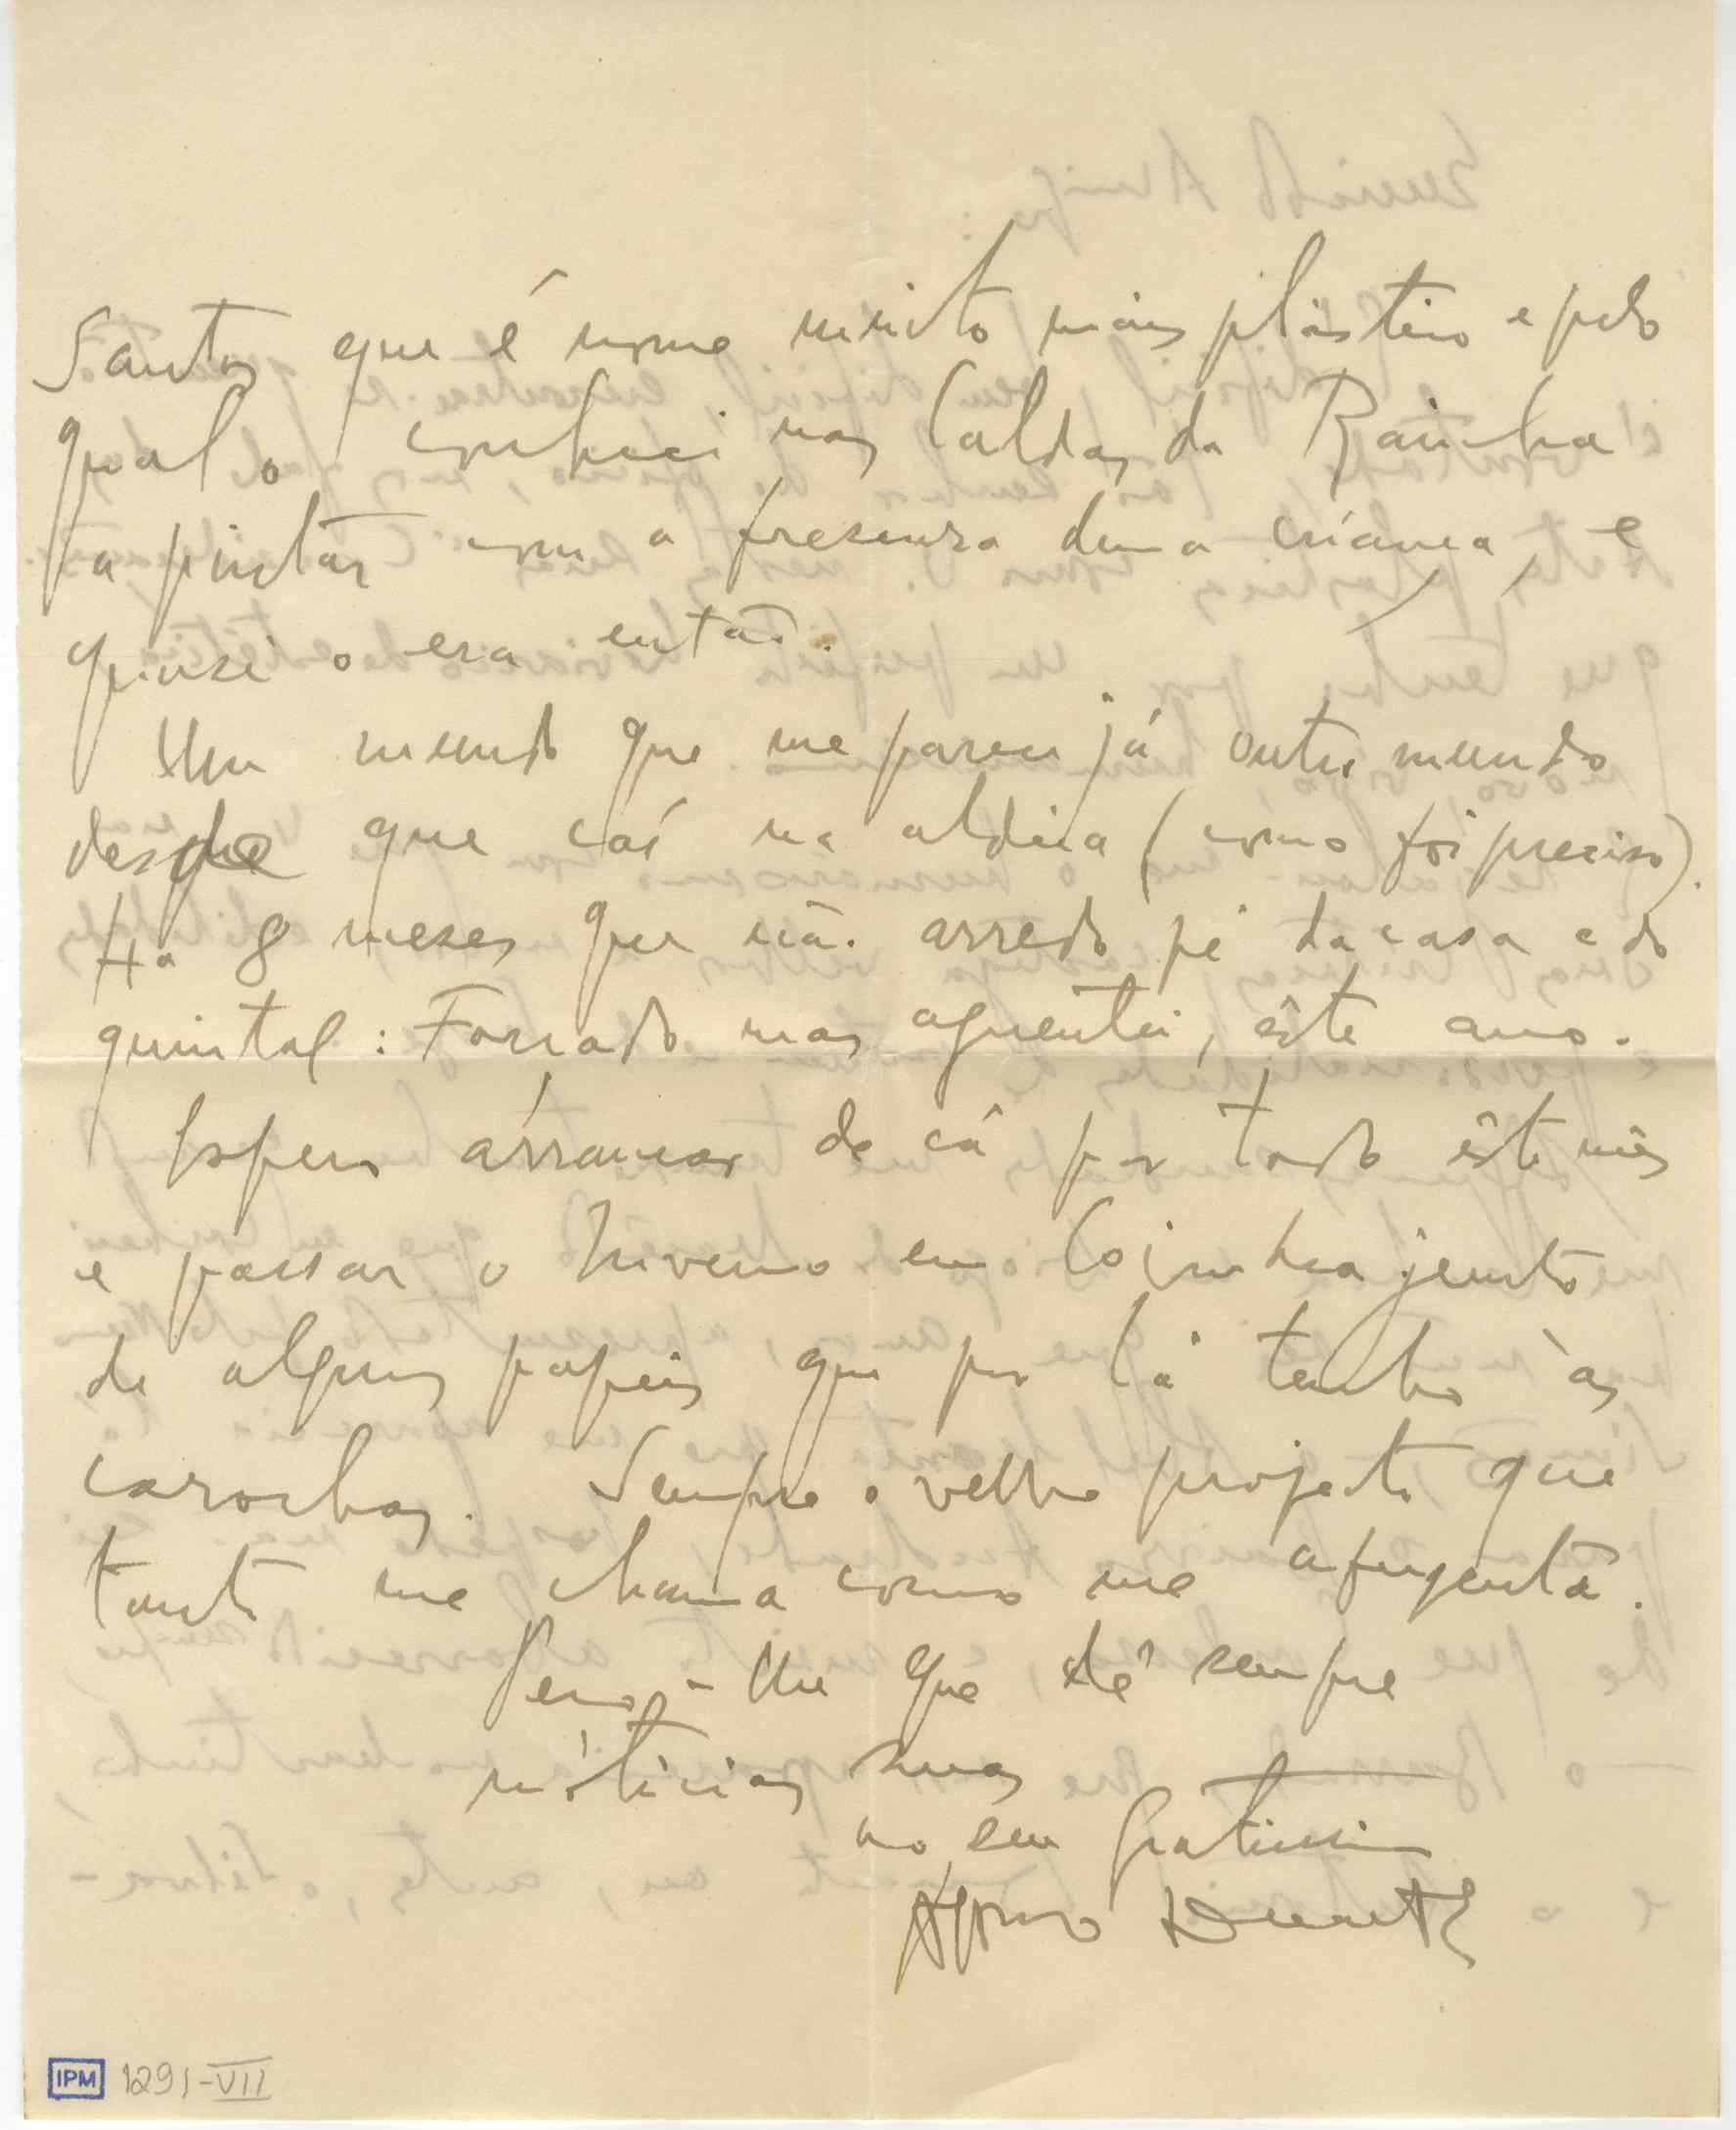 Santos que é nome muito mais plástico e pelo
qual o conheci nas Caldas da Rainha
a pintar com a frescura duma criança, e
quási o era então.
Um mundo que me pareceu já outro mundo
desde que caí na aldeia (como foi preciso).
Há 8 meses que não arredo pé da casa e do
quintal: Forçado mas aguentei, êste ano.
Espero arrancar de cá por todo êste mês
e passar o Inverno em Coimbra junto
de alguns papeis que por lá tenho às
carochas. Sempre o velho projecto que
tanto me chama como me afugenta.
Peço-lhe que dê sempre
nóticias suas
ao seu gratissimo
Afonso Duarte
IPM 1291-VII